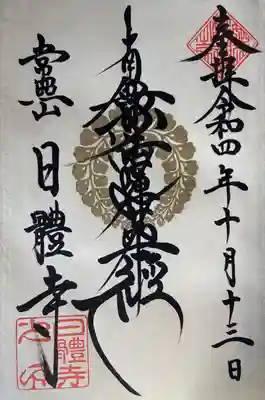 奉拝 令和四年十月十三日
南無妙法蓮華經
日體寺
日體寺
之印